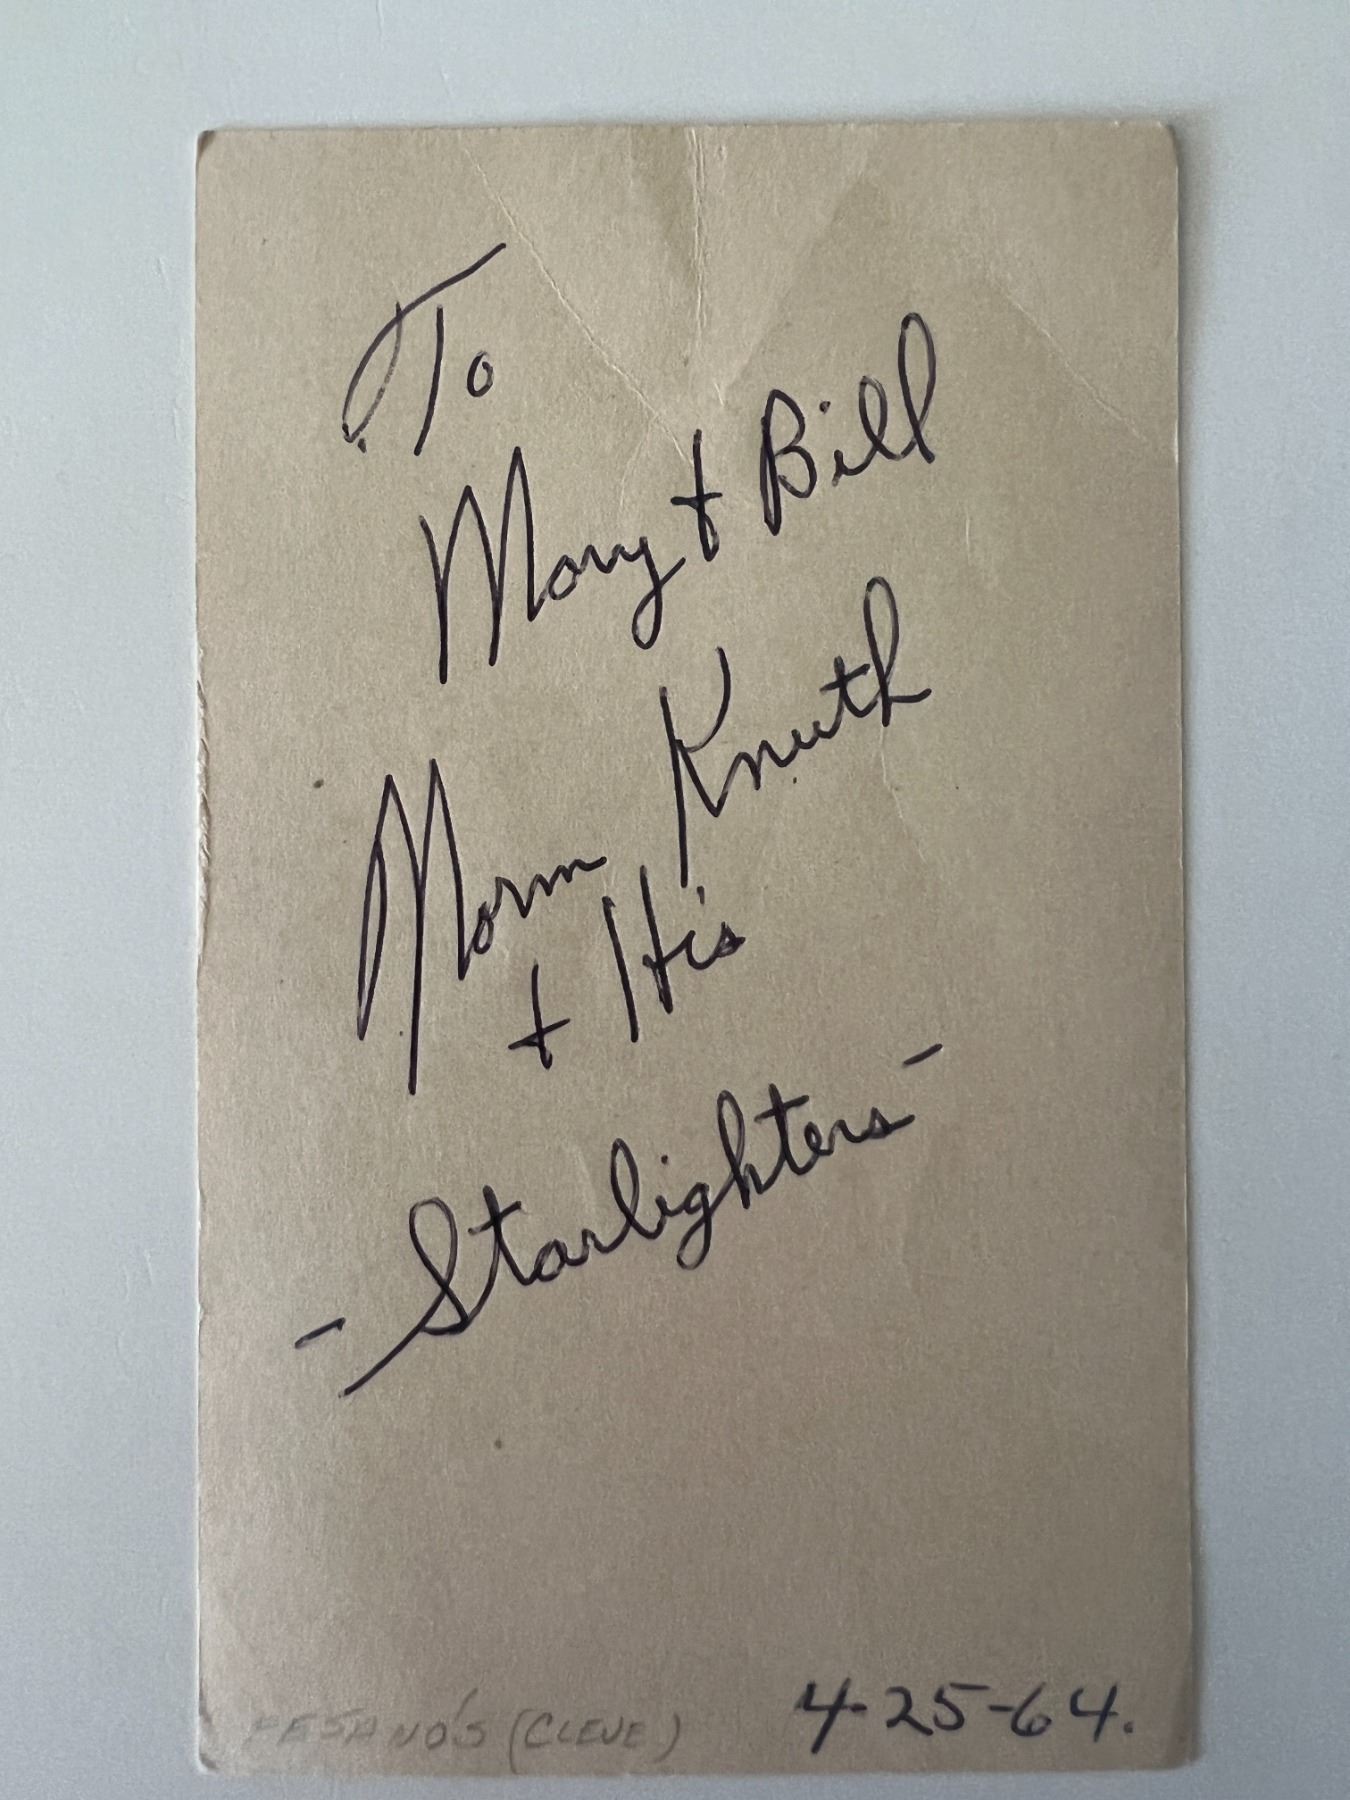 To
Mary + Bill
Norm Knuth
+ His
- Starlighters -
(CLEVE) 4-25-64.